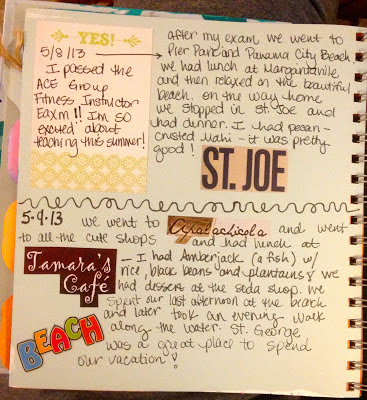 YES!
5/8/13
I passed the
ACE Group
Fitness Instructor
Eaxm!! I'm so
excited about
teaching this summer!
after my exam we went to
Pier Park and Panama City Beach.
we had lunch at Margaritaville
and then relaxed on the beautiful
beach. on the way home
we stopped in St. Joe and
had dinner. I had pecan-
crusted Mahi - it was pretty
good!
ST. JOE
5.9.13 we went to Apalachicola and went
to all the cute shops and had lunch at
Tamara's Café - I had Amberjack (a fish) w/
rice, black beans and plantains & we
had dessert at the soda shop. We
spent our last afternoon at the beach
and later took an evening walk
along the water. St. George
was a great place to spend
our vacation!
BEACH